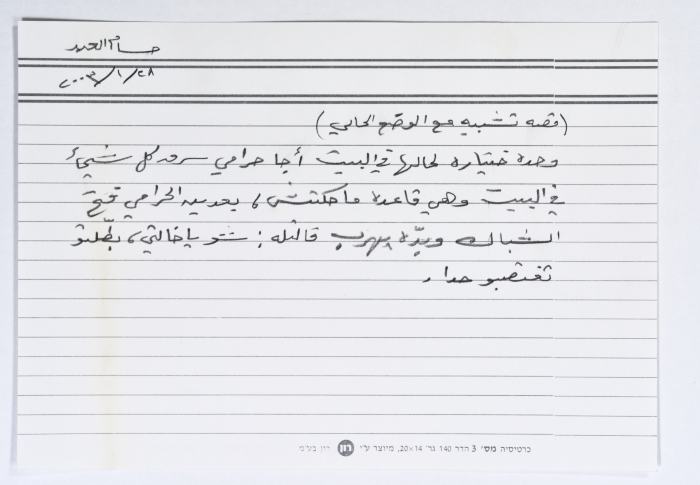 حسام العبد
٢٨/١/٢٠٠٣
(قصه تشبيه مع الوضع الحالي)
وحدة ختياره لحالها في البيت أجا حرامي سرق كل شيء
في البيت وهي قاعده ما حكتش، بعدين الحرامي فتح
الشباك وبدّه يهرب قالتله: شو يا خالتي، بطّلتو
تغتصبو حدا.
כרטיסיה מס' 3 הדר 140 גר' 20×14, מיוצר ע"י רון רון בע"מ